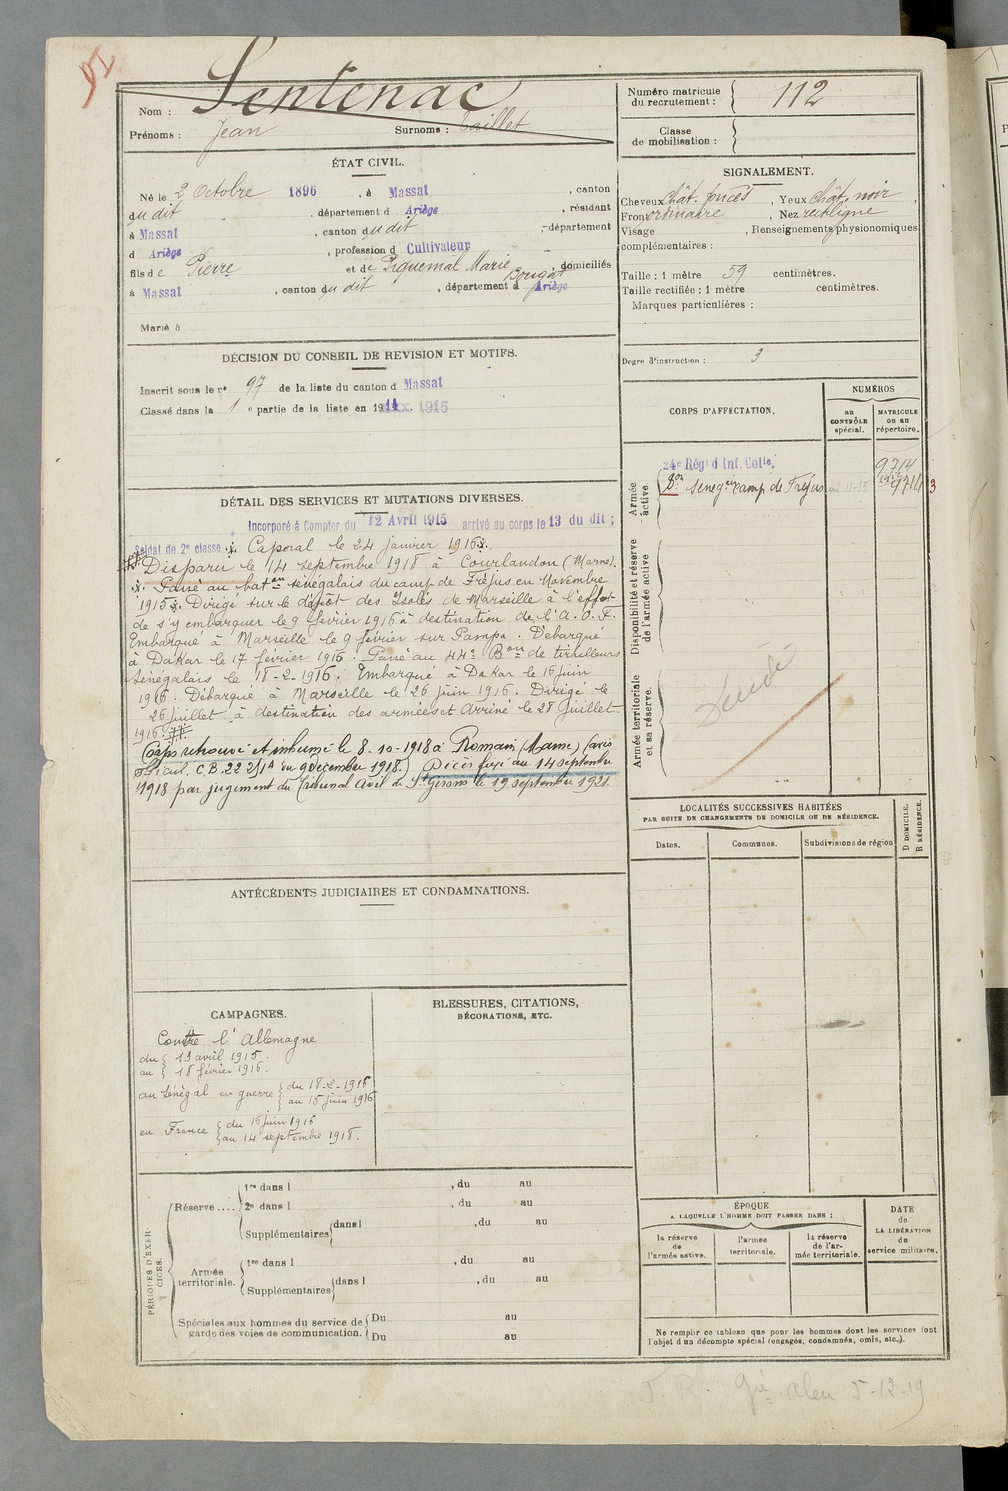 Nom : Sentenac
Prénoms : Jean Surnoms : Caillet
Numéro matricule du recrutement : 112
Classe de mobilisation :
ÉTAT CIVIL.
Né le 2 Octobre 1896, à Massat, canton
du dit, département d Ariège, résidant
à Massat, canton du dit, département
d Ariège, profession d Cultivateur
fils de Pierre et de Piquemal Marie Bougat domiciliés
à Massat, canton du dit, département d Ariège
Marié à
SIGNALEMENT.
Cheveux chât. foncés, Yeux chât. noir,
Front ordinaire, Nez rectiligne
Visage , Renseignements physionomiques
complémentaires :
Taille : 1 mètre 59 centimètres.
Taille rectifiée : 1 mètre centimètres.
Marques particulières :
Degré d'instruction : 3
DÉCISION DU CONSEIL DE REVISION ET MOTIFS.
Inscrit sous le n° 97 de la liste du canton d Massat
Classé dans la 1 e partie de la liste en 1914 1915
DÉTAIL DES SERVICES ET MUTATIONS DIVERSES.
Incorporé à Compter du 12 Avril 1915 arrivé au corps le 13 du dit ;
Soldat de 2e classe. Caporal le 24 janvier 1916.
Disparu le 14 septembre 1918 à Courlandon (Marne).
Passé au bataon sénégalais du camp de Fréjus en Novembre
1915. Dirigé sur le dépôt des Isolés de Marseille à l'effet
de s'y embarquer le 9 février 1916 à destination de l'A. O. F.
Embarqué à Marseille le 9 février sur Pampa. Débarqué
à Dakar le 17 février 1916. Passé au 44e Bon de tirailleurs
Sénégalais le 18-2-1916. Embarqué à Dakar le 16 juin
1916. Débarqué à Marseille le 26 juin 1916. Dirigé le
26 juillet à destination des armées et Arrivé le 28 juillet
1916.
Corps retrouvé et inhumé le 8-10-1918 à Romain (Marne) (avis
officiel. C.B. 222 J1A du 9 décembre 1918.) Décès fixé au 14 septembre
1918 par jugement du Tribunal civil de St Girons le 19 septembre 1921.
CORPS D'AFFECTATION.
NUMÉROS
au CONTRÔLE spécial.
MATRICULE ou au répertoire.
Armée active
24e Régt d Inf. Colle. 9714
Bon Sénégis camp de Fréjus 11-15 9714 3
Disponibilité et réserve de l'armée active.
Armée territoriale et sa réserve.
Décédé
LOCALITÉS SUCCESSIVES HABITÉES
PAR SUITE DE CHANGEMENTS DE DOMICILE OU DE RÉSIDENCE.
Dates. Communes. Subdivisions de région
D DOMICILE.
R RÉSIDENCE.
ANTÉCÉDENTS JUDICIAIRES ET CONDAMNATIONS.
CAMPAGNES.
Contre l'Allemagne
du 13 avril 1915.
au 18 février 1916.
au Sénégal en guerre du 18-2-1916
au 15 juin 1916
en France du 16 juin 1916
au 14 septembre 1918.
BLESSURES, CITATIONS,
DÉCORATIONS, ETC.
PÉRIODES D'EXERCICES.
Réserve .... 1re dans l , du au
2e dans l , du au
Supplémentaires dans l , du au
Armée territoriale. 1re dans l , du au
Supplémentaires dans l , du au
Spéciales aux hommes du service de garde des voies de communication. Du au
Du au
ÉPOQUE
A LAQUELLE L'HOMME DOIT PASSER DANS :
la réserve de l'armée active.
l'armée territoriale.
la réserve de l'armée territoriale.
DATE de LA LIBÉRATION du service militaire.
Ne remplir ce tableau que pour les hommes dont les services font
l'objet d'un décompte spécial (engagés, condamnés, omis, etc.).
5-12-19